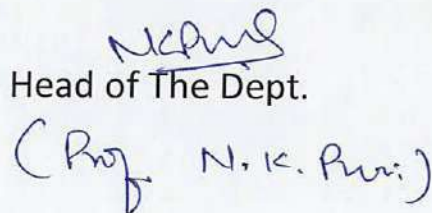 NKPuri
Head of The Dept.
(Prof. N. K. Puri)